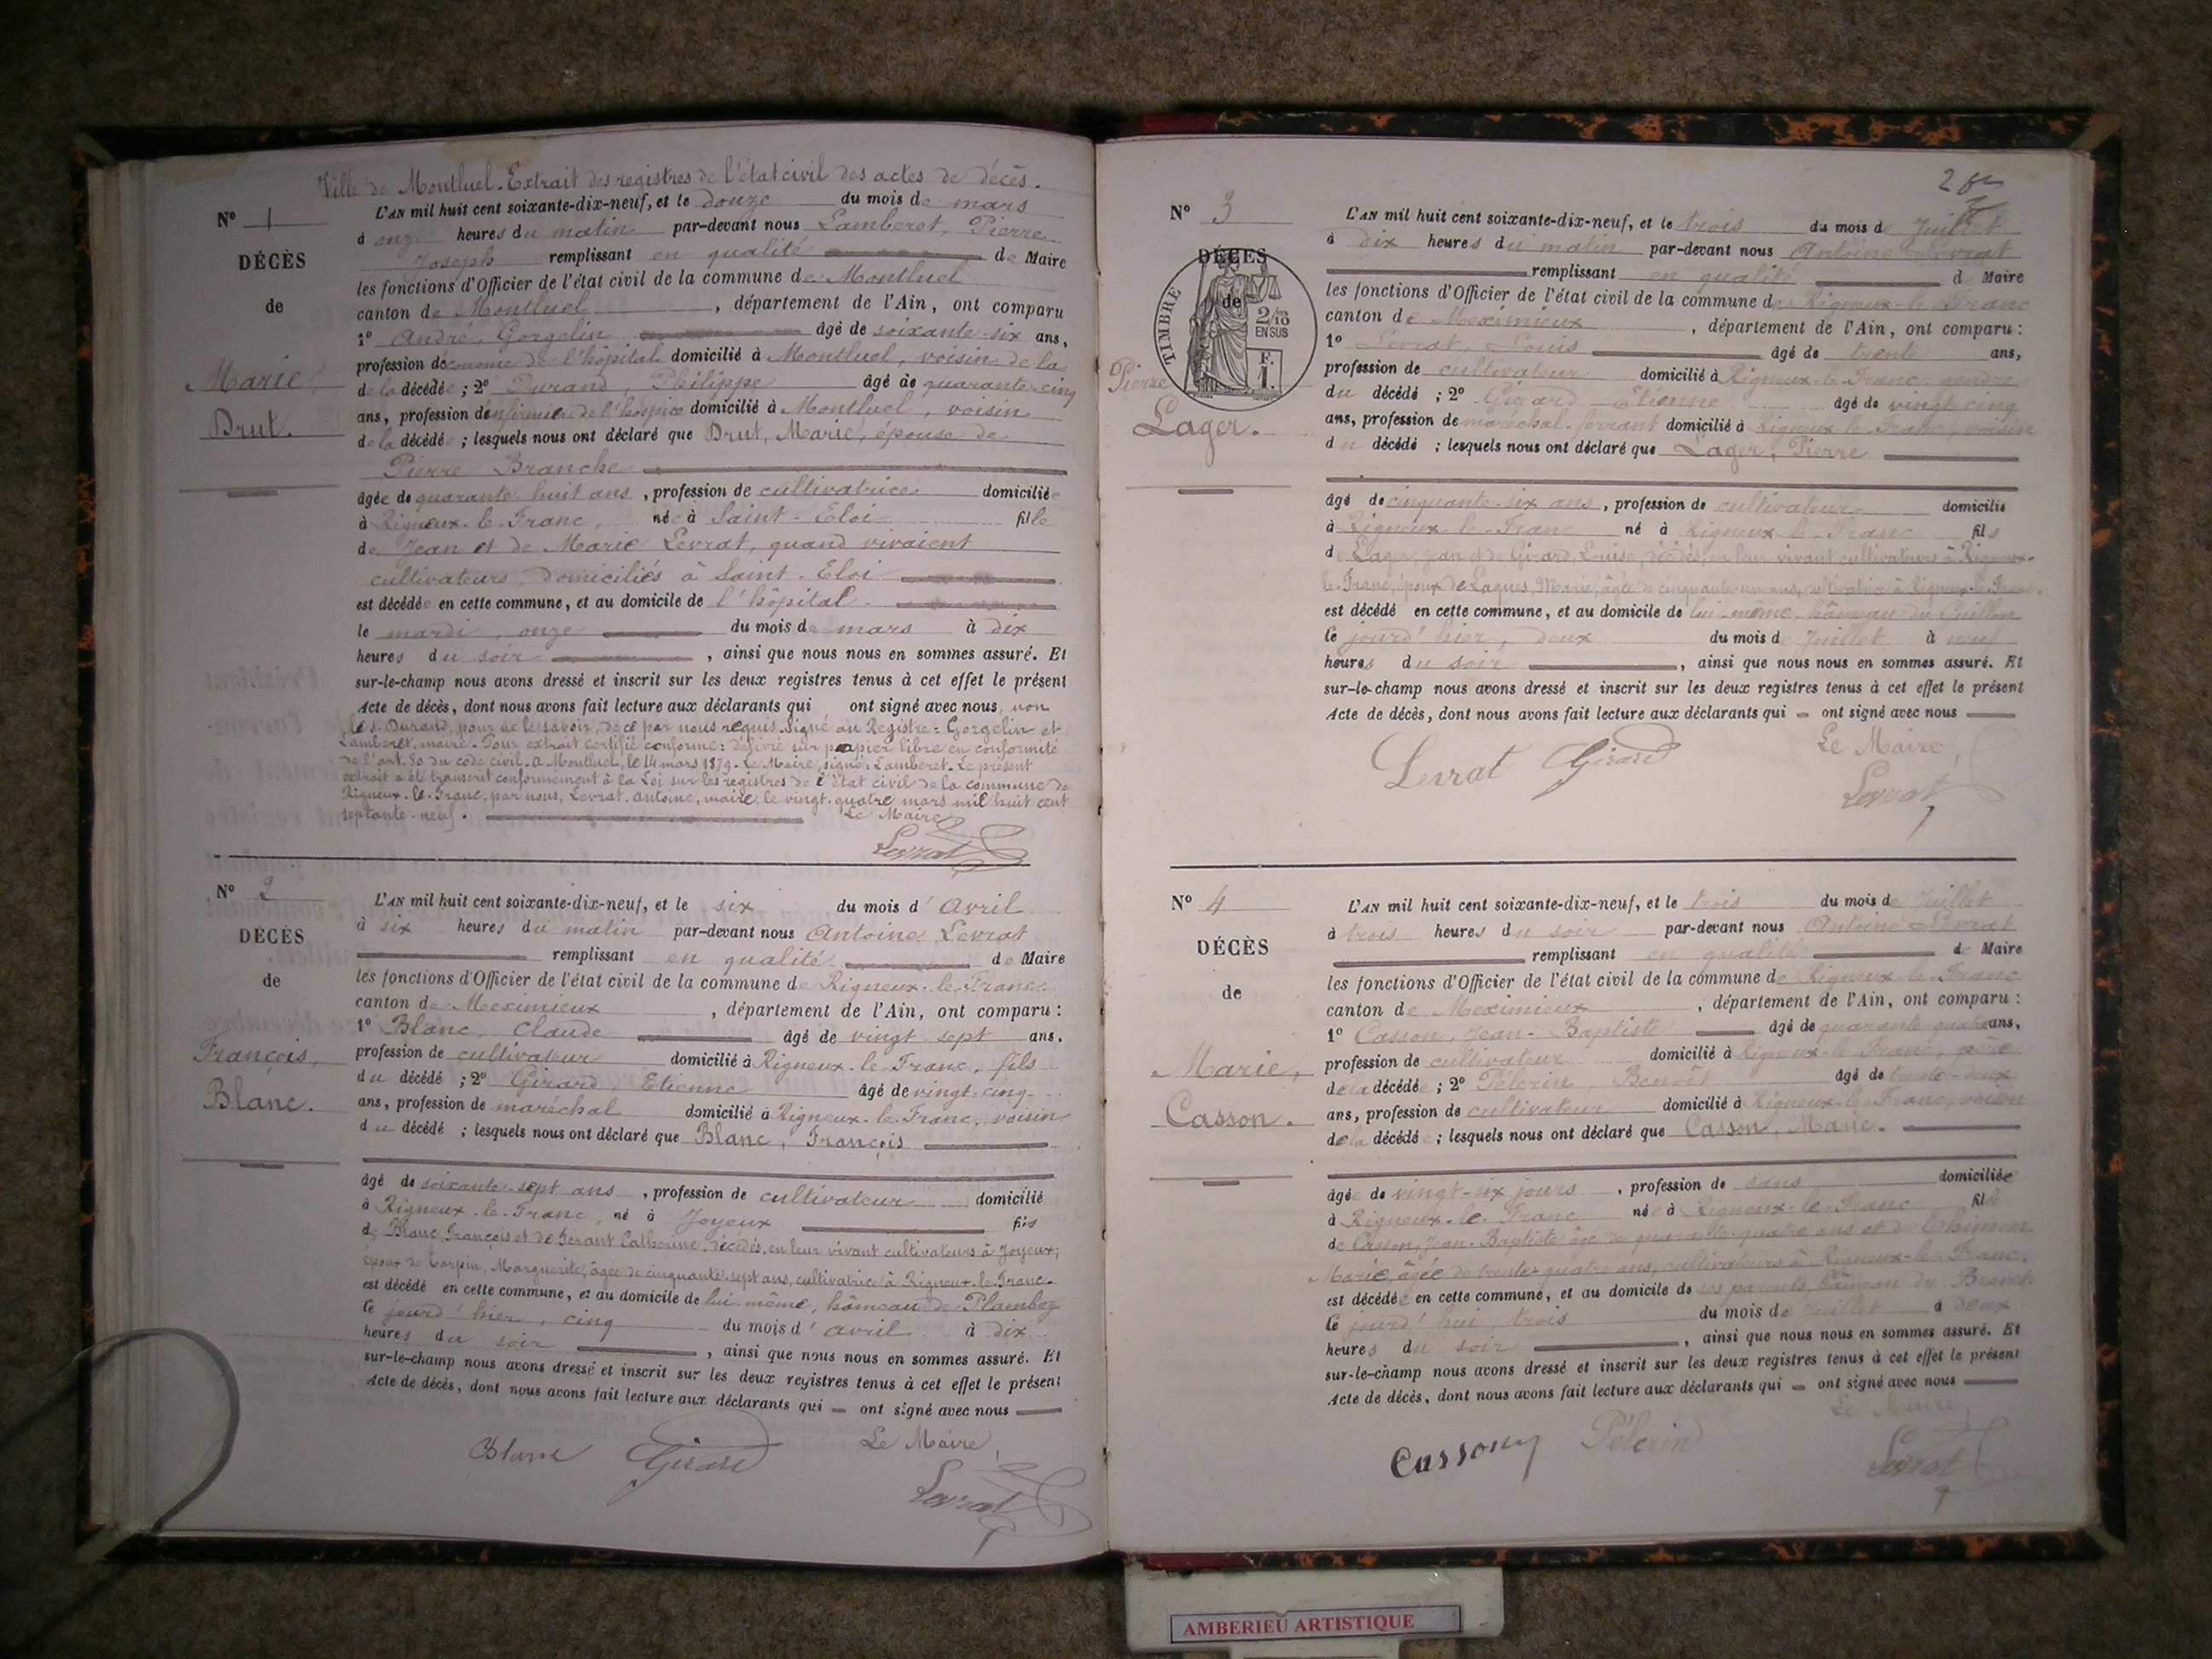 Ville de Montluel. Extrait des registres de l'état civil des actes de décès.
N° 1
DÉCÈS
de
Marie
Brut.
L'AN mil huit cent soixante-dix-neuf, et le douze du mois de mars
à onze heures du matin par-devant nous Lamberet, Pierre
Joseph remplissant en qualité de Maire
les fonctions d'Officier de l'état civil de la commune de Montluel
canton de Montluel, département de l'Ain, ont comparu
1° André, Gorgelin âgé de soixante-six ans,
profession d'économe de l'hôpital domicilié à Montluel, voisin de la
de la décédée ; 2° Durand, Philippe âgé de quarante-cinq
ans, profession d'infirmier de l'hospice domicilié à Montluel, voisin
de la décédée ; lesquels nous ont déclaré que Brut, Marie, épouse de
Pierre Branche
âgée de quarante huit ans, profession de cultivatrice domiciliée
à Rigneux-le-Franc, née à Saint-Eloi fille
de Jean et de Marie Levrat, quand vivaient
cultivateurs, domiciliés à Saint-Eloi
est décédée en cette commune, et au domicile de l'hôpital.
le mardi, onze du mois de mars à dix
heures du soir, ainsi que nous nous en sommes assuré. Et
sur-le-champ nous avons dressé et inscrit sur les deux registres tenus à cet effet le présent
Acte de décès, dont nous avons fait lecture aux déclarants qui ont signé avec nous, non
le s. Durand, pour ne le savoir, de ce par nous requis. Signé au Registre : Gorgelin et
Lamberet, maire. Pour extrait certifié conforme : délivré sur papier libre en conformité
de l'art. 80 du code civil. a Montluel, le 14 mars 1879. Le Maire, signé : Lamberet. Le présent
extrait a été transcrit conformément à la Loi sur les registres de l'état civil de la commune de
Rigneux-le-Franc, par nous, Levrat, Antoine, maire, le vingt-quatre mars mil huit cent
septante-neuf. Le Maire
Levrat
N° 2
DÉCÈS
de
François,
Blanc.
L'AN mil huit cent soixante-dix-neuf, et le six du mois d'avril
à six heures du matin par-devant nous Antoine Levrat
remplissant en qualité de Maire
les fonctions d'Officier de l'état civil de la commune de Rigneux-le-Franc
canton de Meximieux, département de l'Ain, ont comparu :
1° Blanc, Claude âgé de vingt sept ans,
profession de cultivateur domicilié à Rigneux-le-Franc, fils
du décédé ; 2° Girard, Etienne âgé de vingt-cinq
ans, profession de maréchal domicilié à Rigneux-le-Franc, voisin
du décédé ; lesquels nous ont déclaré que Blanc, François
âgé de soixante-sept ans, profession de cultivateur domicilié
à Rigneux-le-Franc, né à Joyeux fils
de Blanc, François et de Ferant Catherine, décédés, en leur vivant cultivateurs à Joyeux ;
époux de Carpin, Marguerite, âgée de cinquante-sept ans, cultivatrice à Rigneux-le-Franc.
est décédé en cette commune, et au domicile de lui-même, hâmeau de
le jourd'hier, cinq du mois d'avril à dix
heures du soir, ainsi que nous nous en sommes assuré. Et
sur-le-champ nous avons dressé et inscrit sur les deux registres tenus à cet effet le présent
Acte de décès, dont nous avons fait lecture aux déclarants qui ont signé avec nous
Blanc Girard Le Maire,
Levrat
N° 3
DÉCÈS
de
TIMBRE
2/10
EN SUS
F.
1.
Pierre
Lager.
L'AN mil huit cent soixante-dix-neuf, et le trois du mois de Juillet
à dix heures du matin par-devant nous Antoine Levrat
remplissant en qualité de Maire
les fonctions d'Officier de l'état civil de la commune de Rigneux-le-Franc
canton de Meximieux, département de l'Ain, ont comparu :
1° Levrat, Louis âgé de trente ans,
profession de cultivateur domicilié à Rigneux-le-Franc, gendre
du décédé ; 2° Girard Etienne âgé de vingt cinq
ans, profession de maréchal-ferrant domicilié à Rigneux-le-Franc, voisin
du décédé ; lesquels nous ont déclaré que Lager, Pierre
âgé de cinquante-six ans, profession de cultivateur domicilié
à Rigneux-le-Franc né à Rigneux-le-Franc fils
de Lager, Jean et de Girard, Louise, décédés, en leur vivant cultivateurs à Rigneux-
le-Franc, époux de Marie, âgée de cinquante-un ans, cultivatrice à Rigneux-le-Franc.
est décédé en cette commune, et au domicile de lui-même, hâmeau du Guillon
le jourd'hier, deux du mois de Juillet à neuf
heures du soir, ainsi que nous nous en sommes assuré. Et
sur-le-champ nous avons dressé et inscrit sur les deux registres tenus à cet effet le présent
Acte de décès, dont nous avons fait lecture aux déclarants qui ont signé avec nous
Levrat Girard Le Maire,
Levrat
N° 4
DÉCÈS
de
Marie,
Casson.
L'AN mil huit cent soixante-dix-neuf, et le trois du mois de Juillet
à trois heures du soir par-devant nous Antoine Levrat
remplissant en qualité de Maire
les fonctions d'Officier de l'état civil de la commune de Rigneux-le-Franc
canton de Meximieux, département de l'Ain, ont comparu :
1° Casson, Jean-Baptiste âgé de quarante-quatre ans,
profession de cultivateur domicilié à Rigneux-le-Franc, père
de la décédée ; 2° Pélerin, Benoît âgé de trente-deux
ans, profession de cultivateur domicilié à Rigneux-le-Franc, voisin
de la décédée ; lesquels nous ont déclaré que Casson, Marie.
âgée de vingt-six jours, profession de sans domiciliée
à Rigneux-le-Franc née à Rigneux-le-Franc fille
de Casson, Jean-Baptiste âgé de quarante-quatre ans et de
Marie, âgée de trente-quatre ans, cultivateurs à Rigneux-le-Franc.
est décédée en cette commune, et au domicile de ses parents, hâmeau du
le jourd'hui, trois du mois de Juillet à deux
heures du soir, ainsi que nous nous en sommes assuré. Et
sur-le-champ nous avons dressé et inscrit sur les deux registres tenus à cet effet le présent
Acte de décès, dont nous avons fait lecture aux déclarants qui ont signé avec nous
Le Maire,
Casson Pélerin
Levrat
AMBERIEU ARTISTIQUE